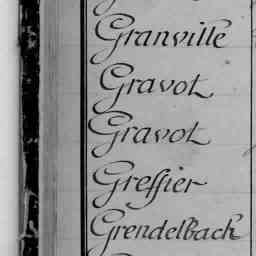 Granville
Gravot
Gravot
Greffier
Grendelbach